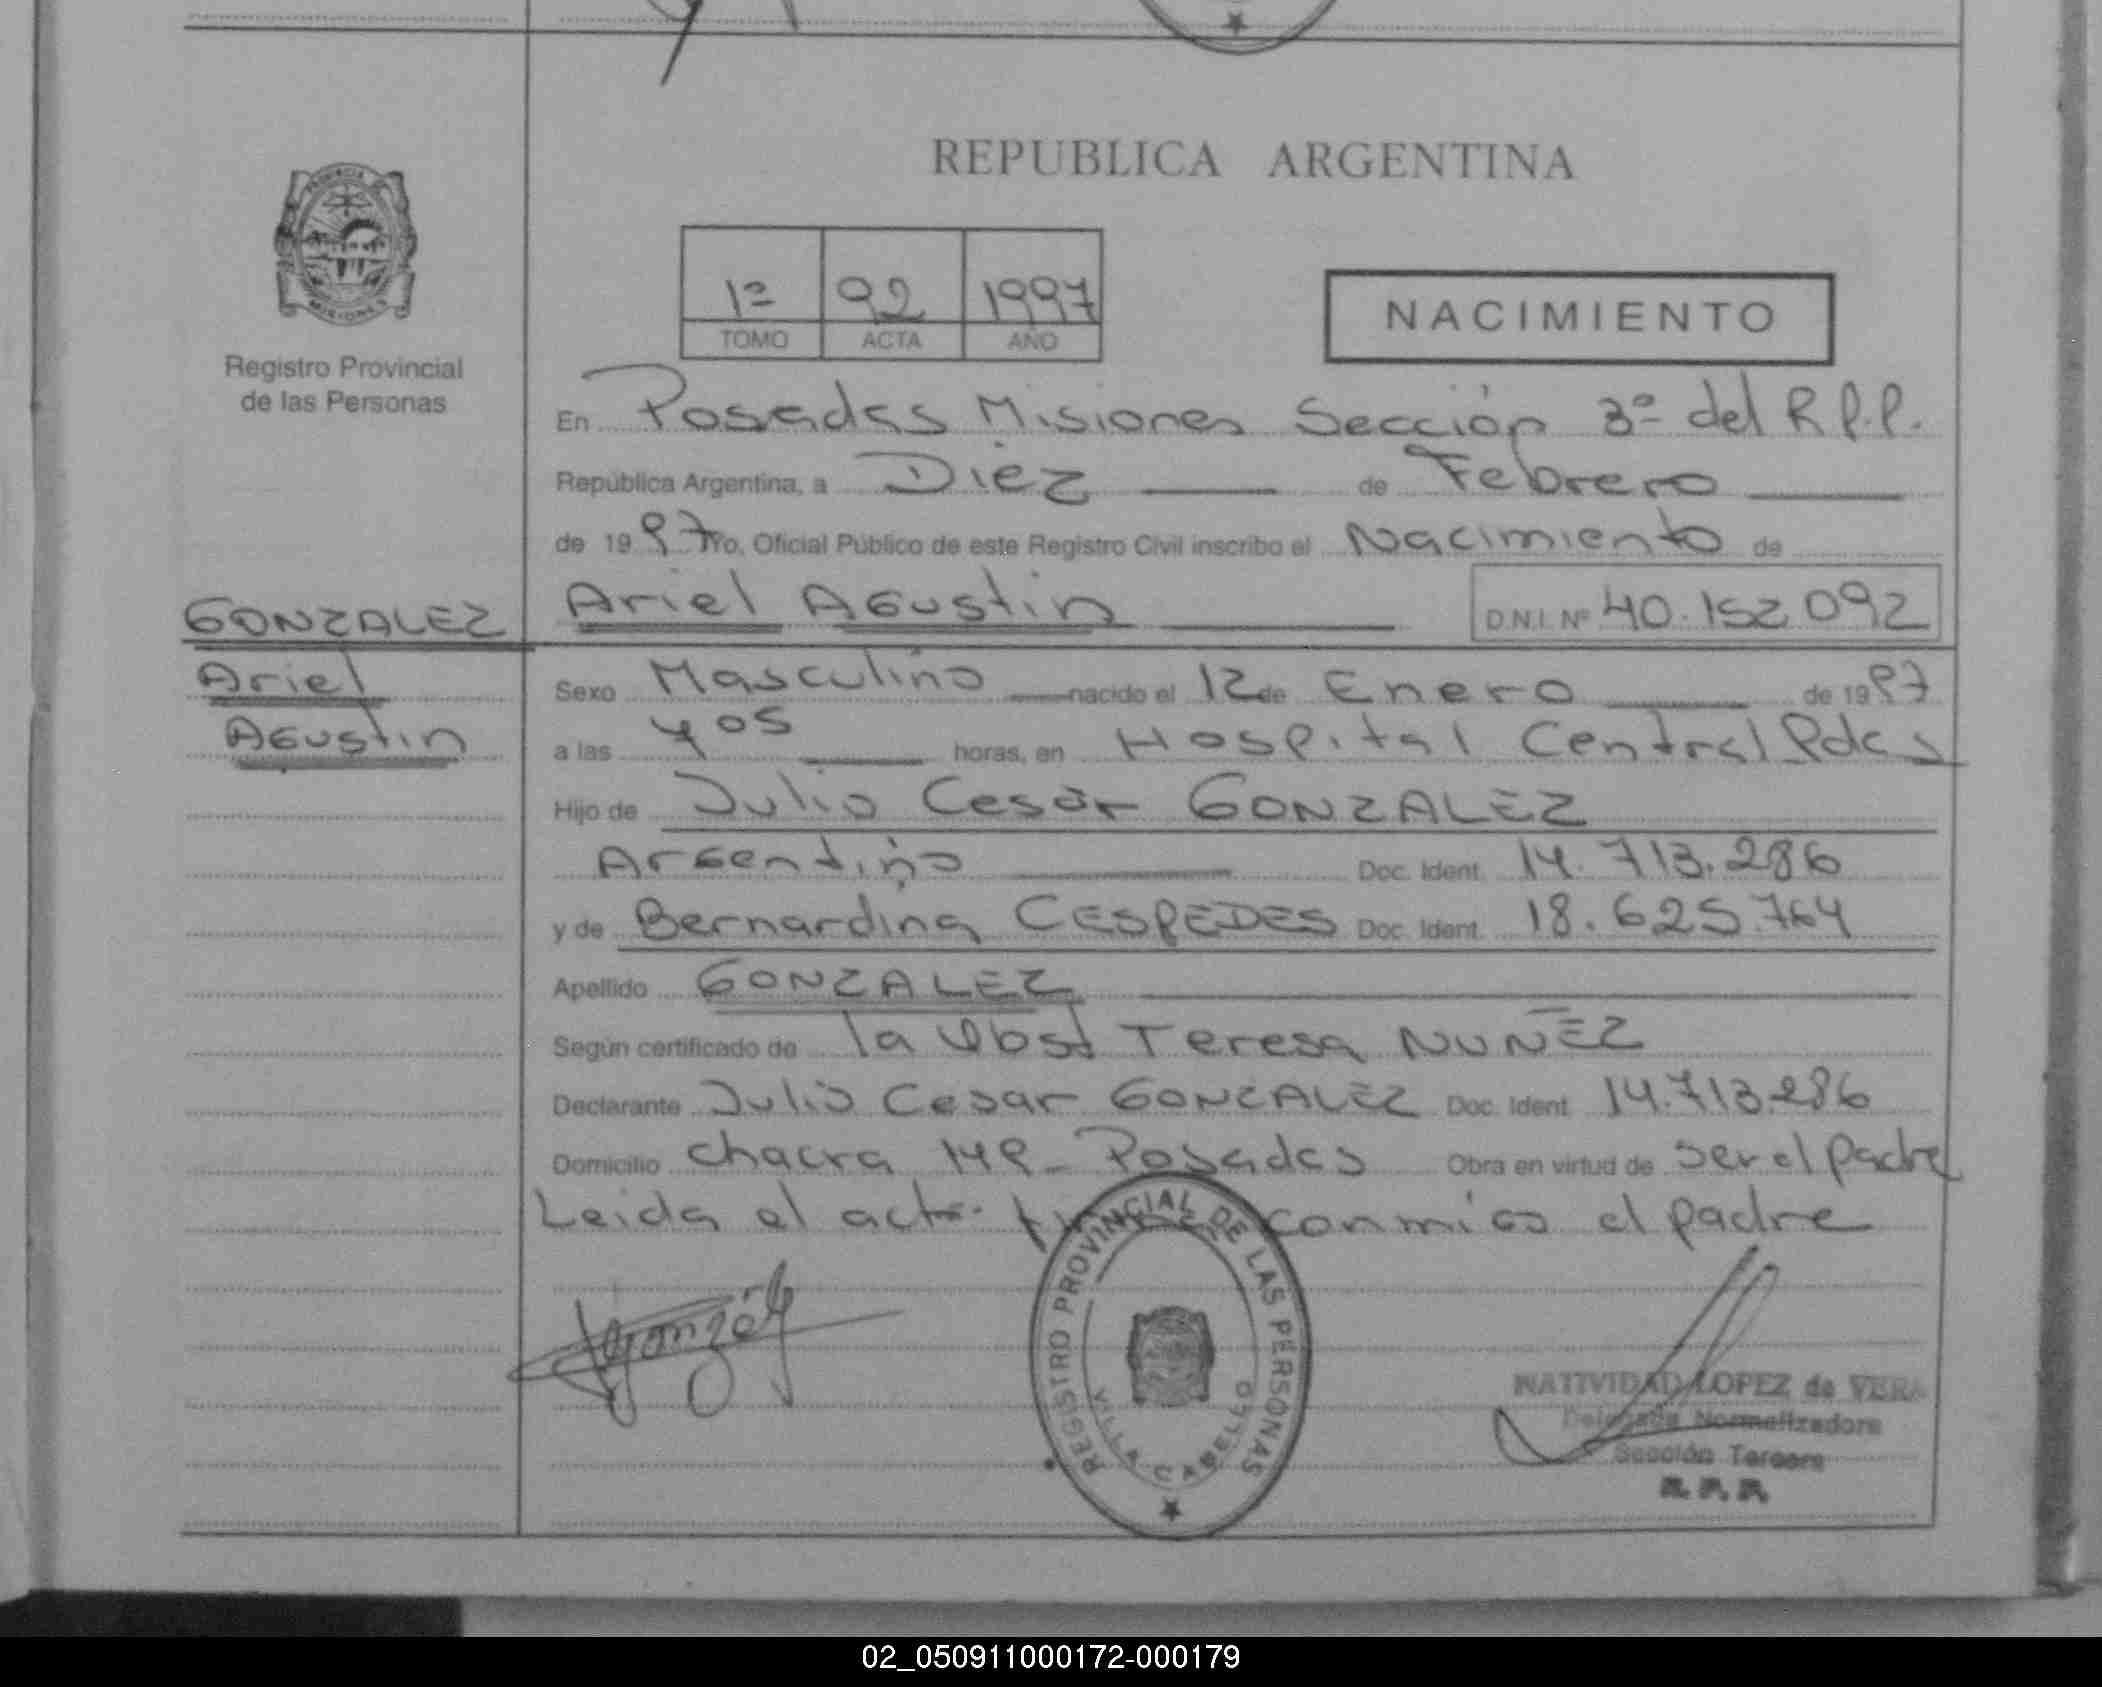 REPUBLICA ARGENTINA
1º 92 1997
TOMO ACTA AÑO
NACIMIENTO
Registro Provincial
de las Personas
En Posadas Misiones Sección 3º del R.P.P.
República Argentina, a Diez de Febrero
de 1997 Yo, Oficial Público de este Registro Civil inscribo el Nacimiento de
GONZALEZ Ariel Agustin D.N.I. Nº 40.152.092
Ariel
Agustin
Sexo Masculino nacido el 12 de Enero de 1997
a las 4 05 horas, en Hospital Central Pdas
Hijo de Julio Cesar GONZALEZ
Argentino Doc. Ident. 14.713.286
y de Bernardina CESPEDES Doc. Ident. 18.625.764
Apellido GONZALEZ
Según certificado de la Obst Teresa NUÑEZ
Declarante Julio Cesar GONZALEZ Doc. Ident. 14.713.286
Domicilio chacra 149 - Posadas Obra en virtud de ser el padre
Leida el acta conmigo el padre
REGISTRO PROVINCIAL DE LAS PERSONAS
VILLA CABELLO
NATIVIDAD LOPEZ de VERA
Delegada Normalizadora
Sección Tercera
R.P.P.
02_050911000172-000179